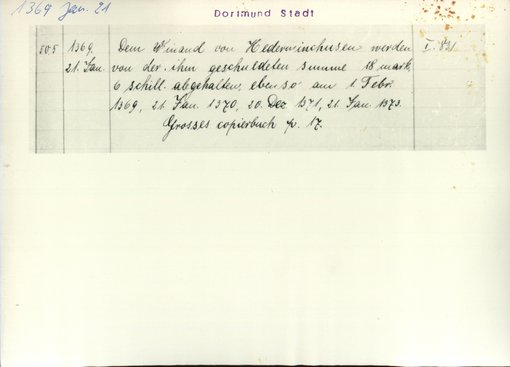 1369 Jan. 21
Dortmund Stadt
805 1369. Dem Winand von Hedeminchusen werden I. 821
21. Jan. von der ihm geschuldeten summe 18 mark
6 schill. abgehalten, ebenso am 1. Febr.
1369, 21. Jan. 1370, 20. Dez. 1371, 21. Jan. 1373.
Grosses copierbuch p. 17.